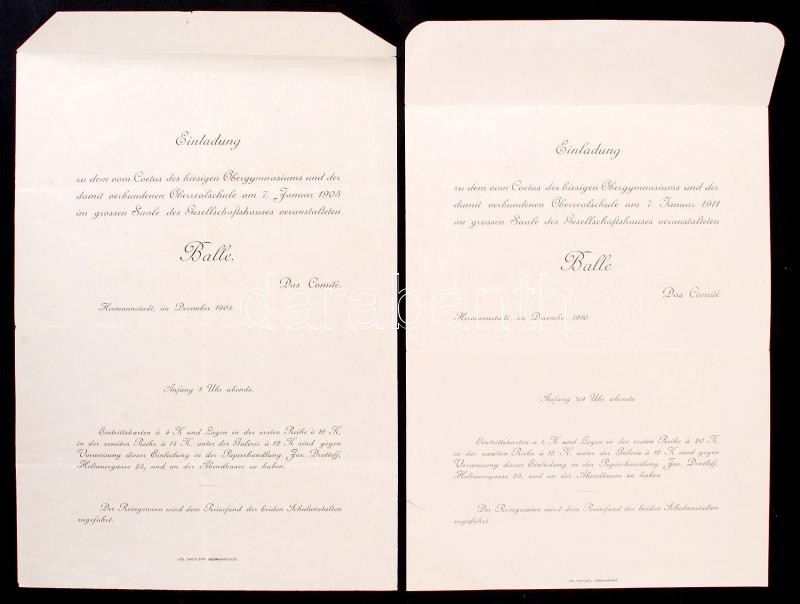 Einladung
zu dem vom Coetus des hiesigen Obergymnasiums und der
damit verbundenen Oberrealschule am 7. Januar 1905
im grossen Saale des Gesellschaftshauses veranstalteten
Balle.
Das Comité.
Hermannstadt, im Dezember 1904.
Anfang 8 Uhr abends.
Eintrittskarten à 4 K und Logen in der ersten Reihe à 16 K,
in der zweiten Reihe à 14 K, unter der Galerie à 12 K sind gegen
Vorweisung dieser Einladung in der Papierhandlung Jos. Drotleff,
Heltauergasse 23, und an der Abendkasse zu haben.
Der Reingewinn wird dem Reisefond der beiden Schulanstalten
zugeführt.
JOS. DROTLEFF, HERMANNSTADT.
Einladung
zu dem vom Coetus des hiesigen Obergymnasiums und der
damit verbundenen Oberrealschule am 7. Januar 1911
im grossen Saale des Gesellschaftshauses veranstalteten
Balle
Das Comité
Hermannstadt, im Dezember 1910
Anfang ½9 Uhr abends
Eintrittskarten à 4 K und Logen in der ersten Reihe à 20 K,
in der zweiten Reihe à 18 K, unter der Galerie à 16 K sind gegen
Vorweisung dieser Einladung in der Papierhandlung Jos. Drotleff,
Heltauergasse 23, und an der Abendkasse zu haben
Der Reingewinn wird dem Reisefond der beiden Schulanstalten
zugeführt
JOS. DROTLEFF, HERMANNSTADT.
darabanth